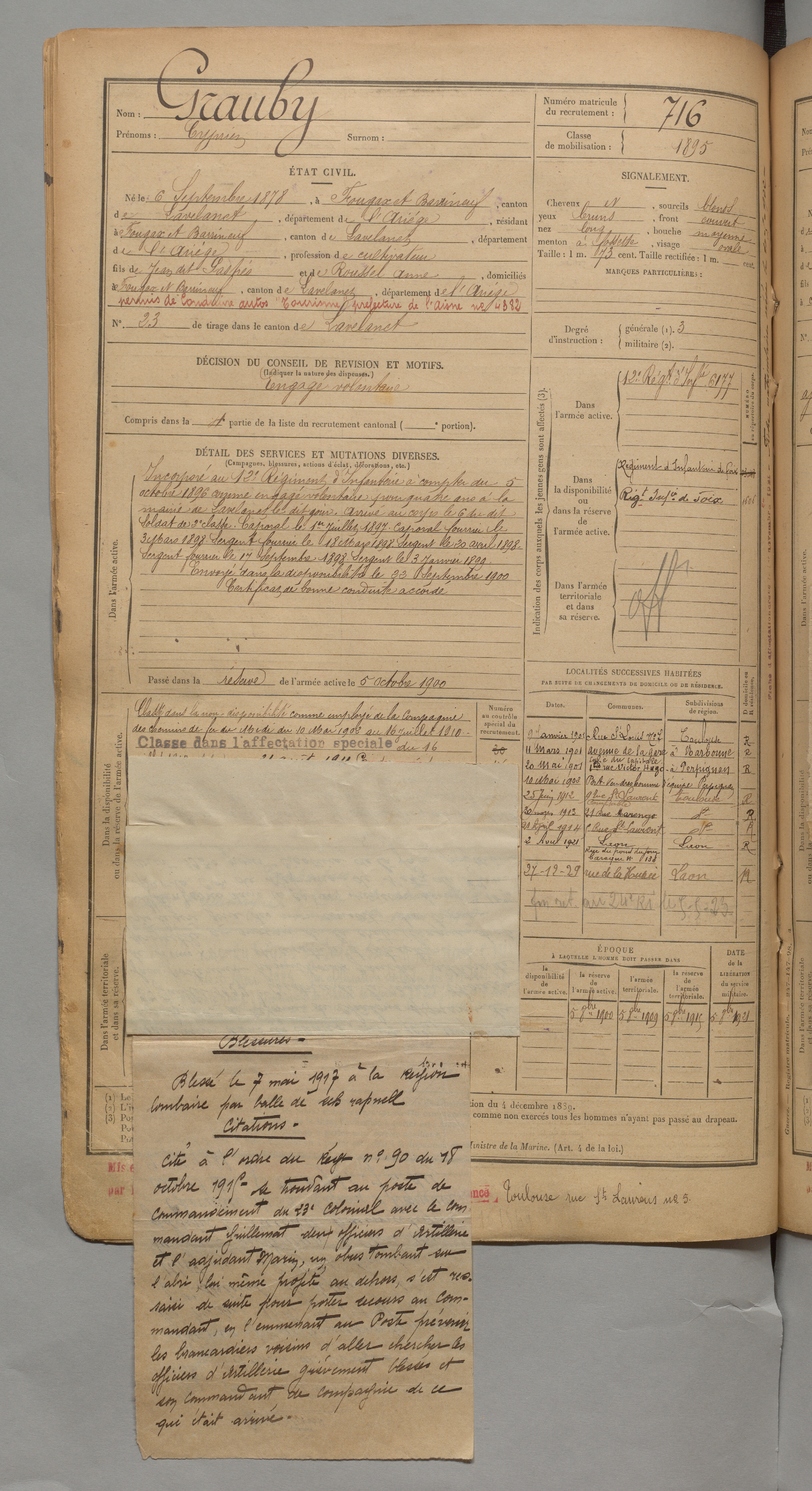 Nom : Grauby
Prénoms : Cyprien Surnom :
Numéro matricule du recrutement : 716
Classe de mobilisation : 1895
ÉTAT CIVIL.
Né le 6 Septembre 1878, à Fougax et Barrineuf, canton
de Lavelanet, département de l'Ariége, résidant
à Fougax et Barrineuf, canton de Lavelanet, département
de l'Ariége, profession de cultivateur
fils de Jean dit et de Roudet Anne, domiciliés
à Fougax et Barrineuf, canton de Lavelanet, département de l'Ariége
permis de Conduire autos Tourisme, préfecture de l'Aisne no 4382
N° 23 de tirage dans le canton de Lavelanet
SIGNALEMENT.
Cheveux N, sourcils blonds
yeux bruns, front couvert
nez long, bouche moyenne
menton à fossette, visage ovale
Taille : 1 m. 73 cent. Taille rectifiée : 1 m. cent.
MARQUES PARTICULIÈRES :
Degré d'instruction : générale (1). 3
militaire (2).
DÉCISION DU CONSEIL DE REVISION ET MOTIFS.
(Indiquer la nature des dispenses.)
Engagé volontaire
Compris dans la partie de la liste du recrutement cantonal ( portion).
DÉTAIL DES SERVICES ET MUTATIONS DIVERSES.
(Campagnes, blessures, actions d'éclat, décorations, etc.)
Dans l'armée active.
Incorporé au 12e Régiment d'Infanterie à compter du 5
octobre 1896 comme engagé volontaire pour quatre ans à la
mairie de Lavelanet le dit jour. Arrivé au corps le 6 dudit
Soldat de 2e classe. Caporal le 1er Juillet 1897. Caporal fourrier le
3 Mars 1898. Sergent fourrier le 18 Mars 1898. Sergent le 20 avril 1898.
Sergent fourrier le 17 Septembre 1898. Sergent le 3 Janvier
Envoyé dans la disponibilité le 23 Septembre 1900
Certificat de bonne conduite accordé
Passé dans la réserve de l'armée active le 5 octobre 1900
Indication des corps auxquels les jeunes gens sont affectés (3).
Dans l'armée active.
12e Régt d'Infie 6177
Dans la disponibilité ou dans la réserve de l'armée active.
Régiment d'Infanterie de Foix
Régt Infie de Foix
Dans l'armée territoriale et dans sa réserve.
Dans la disponibilité ou dans la réserve de l'armée active.
Classé dans la non-disponibilité comme employé de la Compagnie
des chemins de fer du Midi du 10 Mai 1903 au 16 juillet 1910.
Classé dans l'affectation spéciale du 16
Numéro au contrôle spécial du recrutement.
LOCALITÉS SUCCESSIVES HABITÉES
PAR SUITE DE CHANGEMENTS DE DOMICILE OU DE RÉSIDENCE.
Dates. Communes. Subdivisions de région. D domicile ou R résidence.
janvier 1901 Rue St Louis no 7 Toulouse R
11 Mars 1901 avenue de la gare à Narbonne R
20 Mai 1901 rue Victor Hugo à Perpignan R
10 Mai 1903 Port Vendres
25 Juin 1912 St Laurent Toulouse R
1913 21 rue Marengo do R
Avril 1914 Rue St Laurent do R
2 Avril 1921 Laon Laon R
27-12-29 rue de la Laon R
ÉPOQUE
À LAQUELLE L'HOMME DOIT PASSER DANS
la disponibilité de l'armée active. la réserve de l'armée active. l'armée territoriale. la réserve de l'armée territoriale. DATE de la LIBÉRATION du service militaire.
5 8bre 1900 5 8bre 1909 5 8bre 1915 5 8bre 1921
Dans l'armée territoriale et dans sa réserve.
Blessures -
Blessé le 7 mai 1917 à la Région
lombaire par balle de
Citations -
Cité à l'ordre du Régt no 90 du 18
octobre se trouvant au poste de
commandement du 23e Colonial avec le com-
mandant Guillemat deux officiers d'Artillerie
et l'adjudant Marin, un obus tombant sur
l'abri, lui même projeté au dehors, s'est res-
saisi de suite pour porter secours au Com-
mandant, en l'emmenant au Poste prévenir
les brancardiers voisins d'aller chercher les
officiers d'Artillerie grièvement blessés et
son commandant de compagnie de ce
qui était arrivé -
ion du 4 décembre 1889.
comme non exercés tous les hommes n'ayant pas passé au drapeau.
Ministre de la Marine. (Art. 4 de la loi.)
Toulouse rue St Laurens no 5